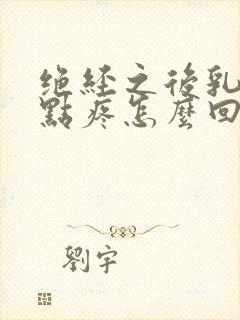 绝经之後乳
點疼怎麼回
劉宇